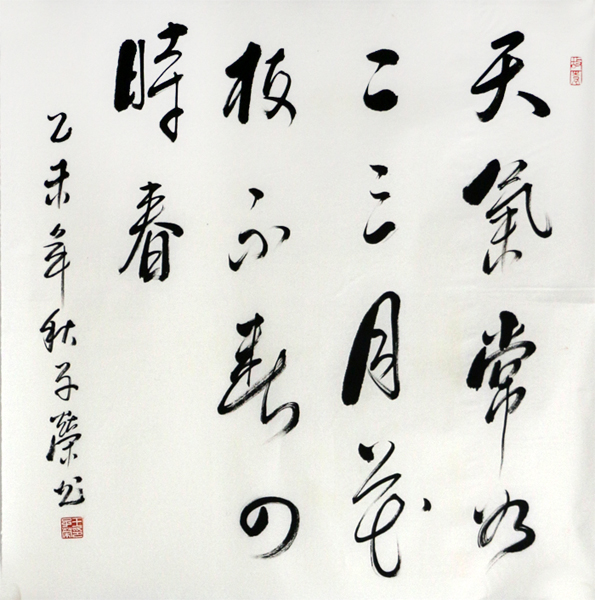 天氣常如
二三月花
枝不斷四
時春
乙未年秋子榮书